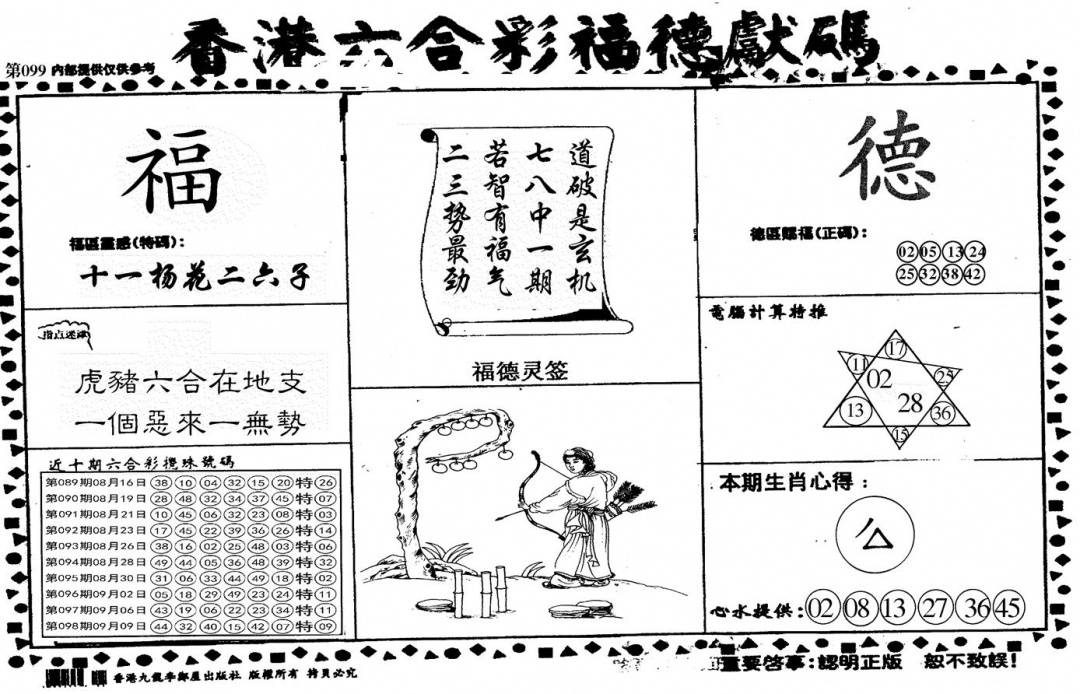 香港六合彩福德獻碼
第099 内部提供仅供参考
福
福區靈感(特碼):
十一杨花二六子
指点迷津
虎豬六合在地支
一個惡來一無勢
近十期六合彩攪珠號碼
第089期08月16日 38 10 04 32 15 20 特 26
第090期08月19日 28 48 32 34 37 45 特 07
第091期08月21日 10 45 06 32 23 08 特 03
第092期08月23日 17 45 22 39 36 26 特 14
第093期08月26日 38 16 02 25 48 03 特 06
第094期08月28日 49 44 05 36 48 39 特 32
第095期08月30日 31 06 33 44 49 18 特 02
第096期09月02日 05 18 29 49 23 24 特 11
第097期09月06日 43 19 06 22 23 34 特 11
第098期09月09日 44 32 40 15 42 07 特 09
道破是玄机
七八中一期
若智有福气
二三势最劲
福德灵签
德
德區賜福(正碼):
02 05 13 24
25 32 38 42
電腦計算特推
17
11 02 25
13 28 36
15
本期生肖心得:
心水提供: 02 08 13 27 36 45
香港九龍李鄭屋出版社 版權所有 拷貝必究
重要啓事:認明正版 恕不致誤!